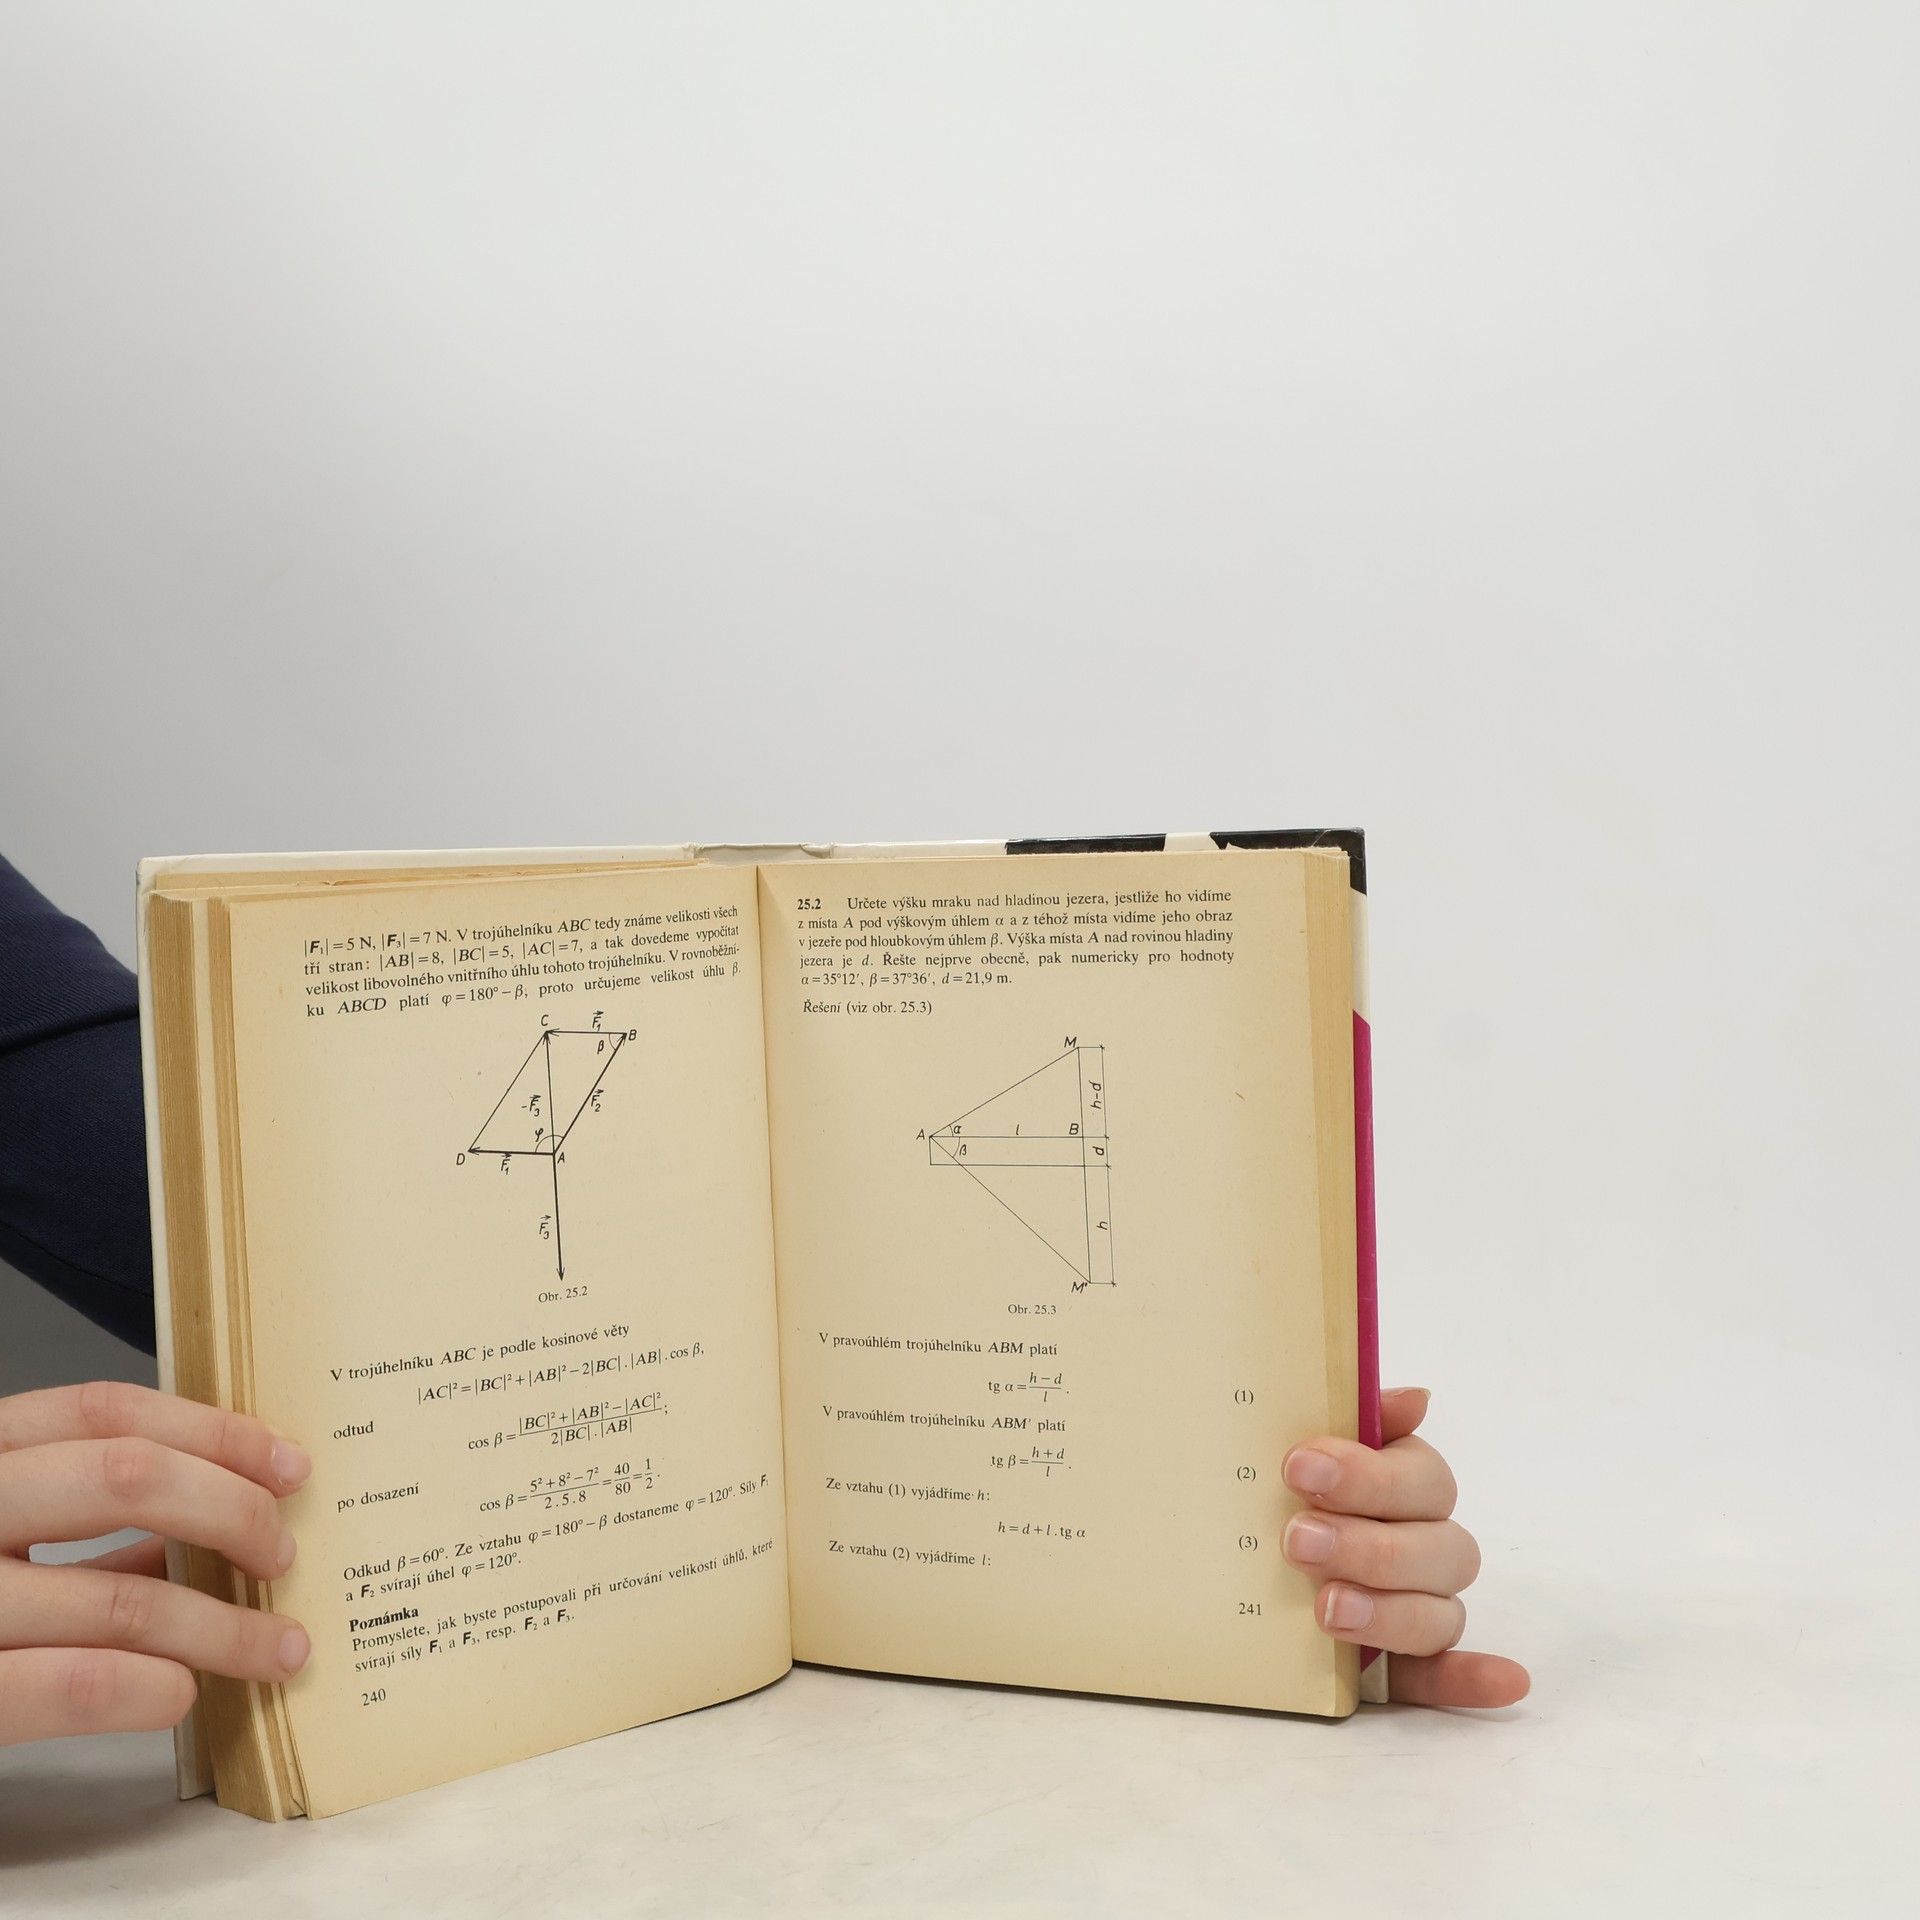 |F₁| = 5 N, |F₃| = 7 N. V trojúhelníku ABC tedy známe velikosti všech
tří stran: |AB| = 8, |BC| = 5, |AC| = 7, a tak dovedeme vypočítat
velikost libovolného vnitřního úhlu tohoto trojúhelníku. V rovnoběžní-
ku ABCD platí φ = 180° − β, proto určujeme velikost úhlu β.
C F₁ B
β
-F₃ F₂
φ
D F₁ A
F₃
Obr. 25.2
V trojúhelníku ABC je podle kosinové věty
|AC|² = |BC|² + |AB|² − 2|BC| . |AB| . cos β,
odtud cos β = (|BC|² + |AB|² − |AC|²) / (2|BC| . |AB|);
po dosazení cos β = (5² + 8² − 7²) / (2 . 5 . 8) = 40/80 = 1/2 .
Odkud β = 60°. Ze vztahu φ = 180° − β dostaneme φ = 120°. Síly F₁
a F₂ svírají úhel φ = 120°.
Poznámka
Promyslete, jak byste postupovali při určování velikostí úhlů, které
svírají síly F₁ a F₃, resp. F₂ a F₃.
240
25.2 Určete výšku mraku nad hladinou jezera, jestliže ho vidíme
z místa A pod výškovým úhlem α a z téhož místa vidíme jeho obraz
v jezeře pod hloubkovým úhlem β. Výška místa A nad rovinou hladiny
jezera je d. Řešte nejprve obecně, pak numericky pro hodnoty
α = 35°12′, β = 37°36′, d = 21,9 m.
Řešení (viz obr. 25.3)
M
h-d
A α l B
β d
h
M'
Obr. 25.3
V pravoúhlém trojúhelníku ABM platí
tg α = (h − d)/l . (1)
V pravoúhlém trojúhelníku ABM′ platí
tg β = (h + d)/l . (2)
Ze vztahu (1) vyjádříme h:
h = d + l . tg α (3)
Ze vztahu (2) vyjádříme l:
241